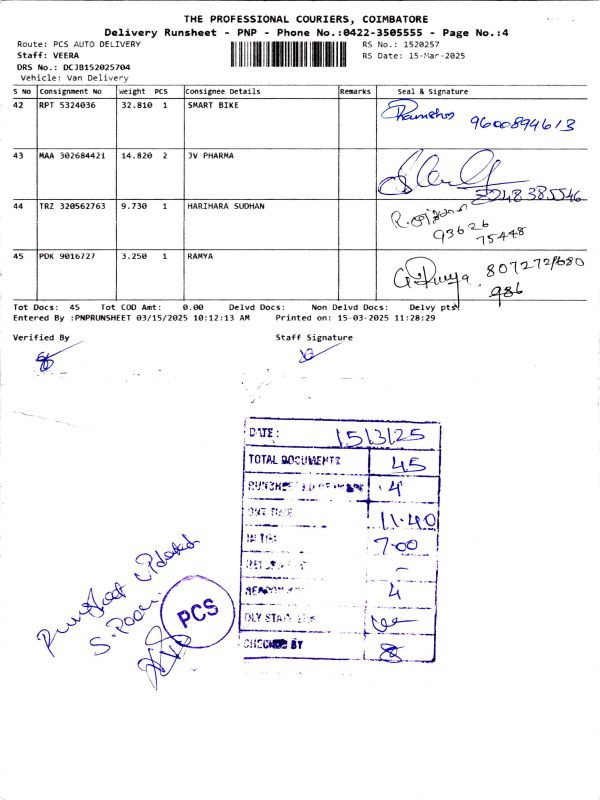 THE PROFESSIONAL COURIERS, COIMBATORE
Delivery Runsheet - PNP - Phone No.:0422-3505555 - Page No.:4
Route: PCS AUTO DELIVERY RS No.: 1520257
Staff: VEERA RS Date: 15-Mar-2025
DRS No.: DCJB152025704
Vehicle: Van Delivery
S No Consignment No Weight PCS Consignee Details Remarks Seal & Signature
42 RPT 5324036 32.810 1 SMART BIKE
9600894613
43 MAA 302684421 14.820 2 JV PHARMA
44 TRZ 320562763 9.730 1 HARIHARA SUDHAN
93626
75448
45 PDK 9016727 3.250 1 RAMYA
G. Ramya
986
Tot Docs: 45 Tot COD Amt: 0.00 Delvd Docs: Non Delvd Docs: Delvy pts:
Entered By :PNPRUNSHEET 03/15/2025 10:12:13 AM Printed on: 15-03-2025 11:28:29
Verified By Staff Signature
DATE: 15/3/25
TOTAL DOCUMENTS 45
4
OUT TIME 11.40
IN TIME 7.00
-
4
DLY STAFF
CHECKED BY
Runsheet updated
S. Poori
PCS